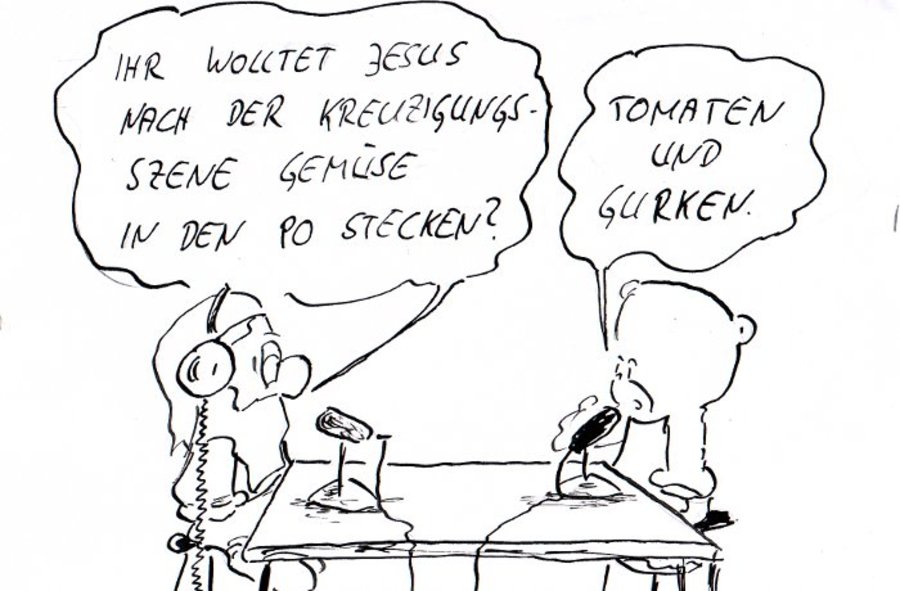 IHR WOLLTET JESUS
NACH DER KREUZIGUNGS-
SZENE GEMÜSE
IN DEN PO STECKEN?
TOMATEN
UND
GURKEN.